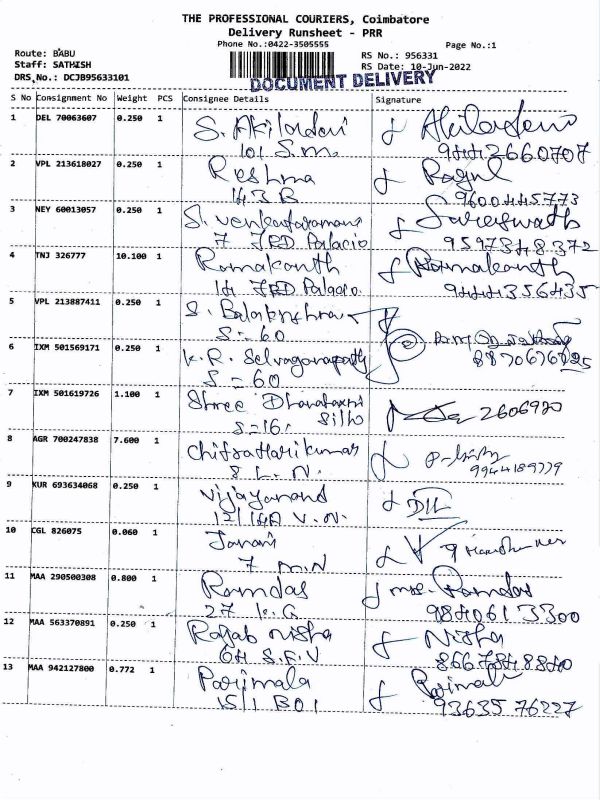 THE PROFESSIONAL COURIERS, Coimbatore
Delivery Runsheet - PRR
Phone No.:0422-3505555
Page No.:1
Route: BABU
RS No.: 956331
Staff: SATHISH
RS Date: 10-Jun-2022
DRS No.: DCJB95633101
DOCUMENT DELIVERY
S No Consignment No Weight PCS Consignee Details Signature
1 DEL 70063607 0.250 1
101 S.M. 9443660707
2 VPL 213618027 0.250 1 Reshma Ragul
143 B 9600445773
3 NEY 60013057 0.250 1 S. Venkataramani
7 JRD Palacio 9597348372
4 TNJ 326777 10.100 1 Ramakanth Ramakanth
14 JRD Palacio. 9444356435
5 VPL 213887411 0.250 1 S. Balakrishnan
S = 60
6 IXM 501569171 0.250 1 K.R. Selvaganapathy
S = 60
7 IXM 501619726 1.100 1 Shree
S=16. 2606920
8 AGR 700247838 7.600 1 Chitra Harikumar
8 L. N. 9944189779
9 KUR 693634068 0.250 1 Vijayanand
12/14A V.N.
10 CGL 826075 0.060 1 Janani
7 M.N
11 MAA 290500308 0.800 1 Ramdas Ramdas
27 K.G 984061 3300
12 MAA 563370891 0.250 1 Rajab Nisha Nisha
64 S.F.V 8667848840
13 MAA 942127800 0.772 1 Parimala
15/1 BO1 93635 76227